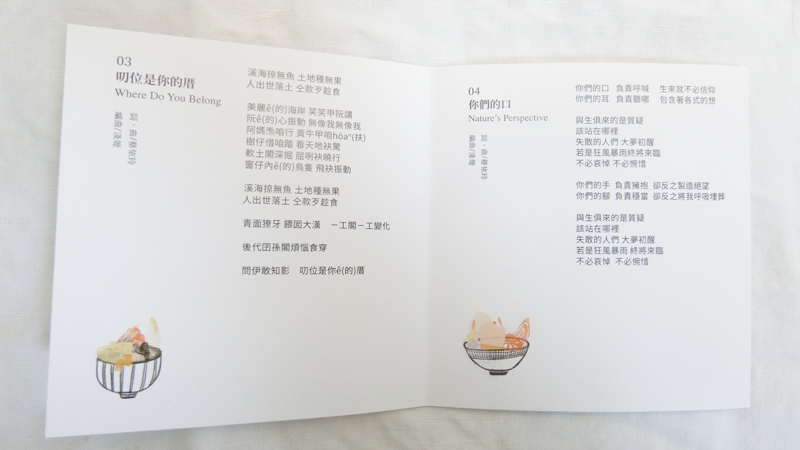 03
叨位是你的厝
Where Do You Belong
詞、曲/蔡依玲
編曲/淺堤
溪海掠無魚 土地種無果
人出世落土 仝款歹趁食
美麗ê(的)海岸 笑笑甲阮講
阮ê(的)心振動 無像我無像我
阿媽𤆬咱行 黃牛甲咱hôaⁿ(扶)
樹仔借咱踏 看天地袂驚
軟土闊深掘 屈咧袂曉行
窗仔內ê(的)鳥隻 飛袂振動
溪海掠無魚 土地種無果
人出世落土 仝款歹趁食
青面獠牙 餵囡大漢 一工閣一工變化
後代囝孫閣煩惱食穿
問伊敢知影 叨位是你ê(的)厝
04
你們的口
Nature's Perspective
詞、曲/蔡依玲
編曲/淺堤
你們的口 負責呼喊 生來就不必信仰
你們的耳 負責聽哪 包含著各式的想
與生俱來的是質疑
該站在哪裡
失散的人們 大夢初醒
若是狂風暴雨終將來臨
不必哀悼 不必惋惜
你們的手 負責擁抱 卻反之製造絕望
你們的腳 負責穩當 卻反之將我呼吸埋葬
與生俱來的是質疑
該站在哪裡
失散的人們 大夢初醒
若是狂風暴雨 終將來臨
不必哀悼 不必惋惜